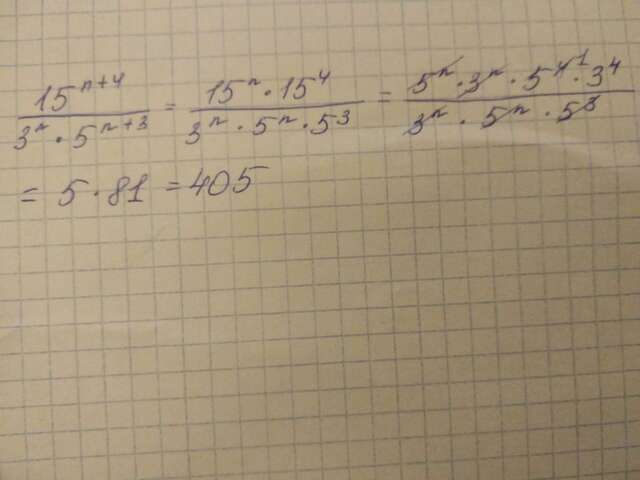 15^{n+4} / 3^n · 5^{n+3} = 15^n · 15^4 / 3^n · 5^n · 5^3 = 5^n · 3^n · 5^4 ^1 · 3^4 / 3^n · 5^n · 5^3
= 5 · 81 = 405